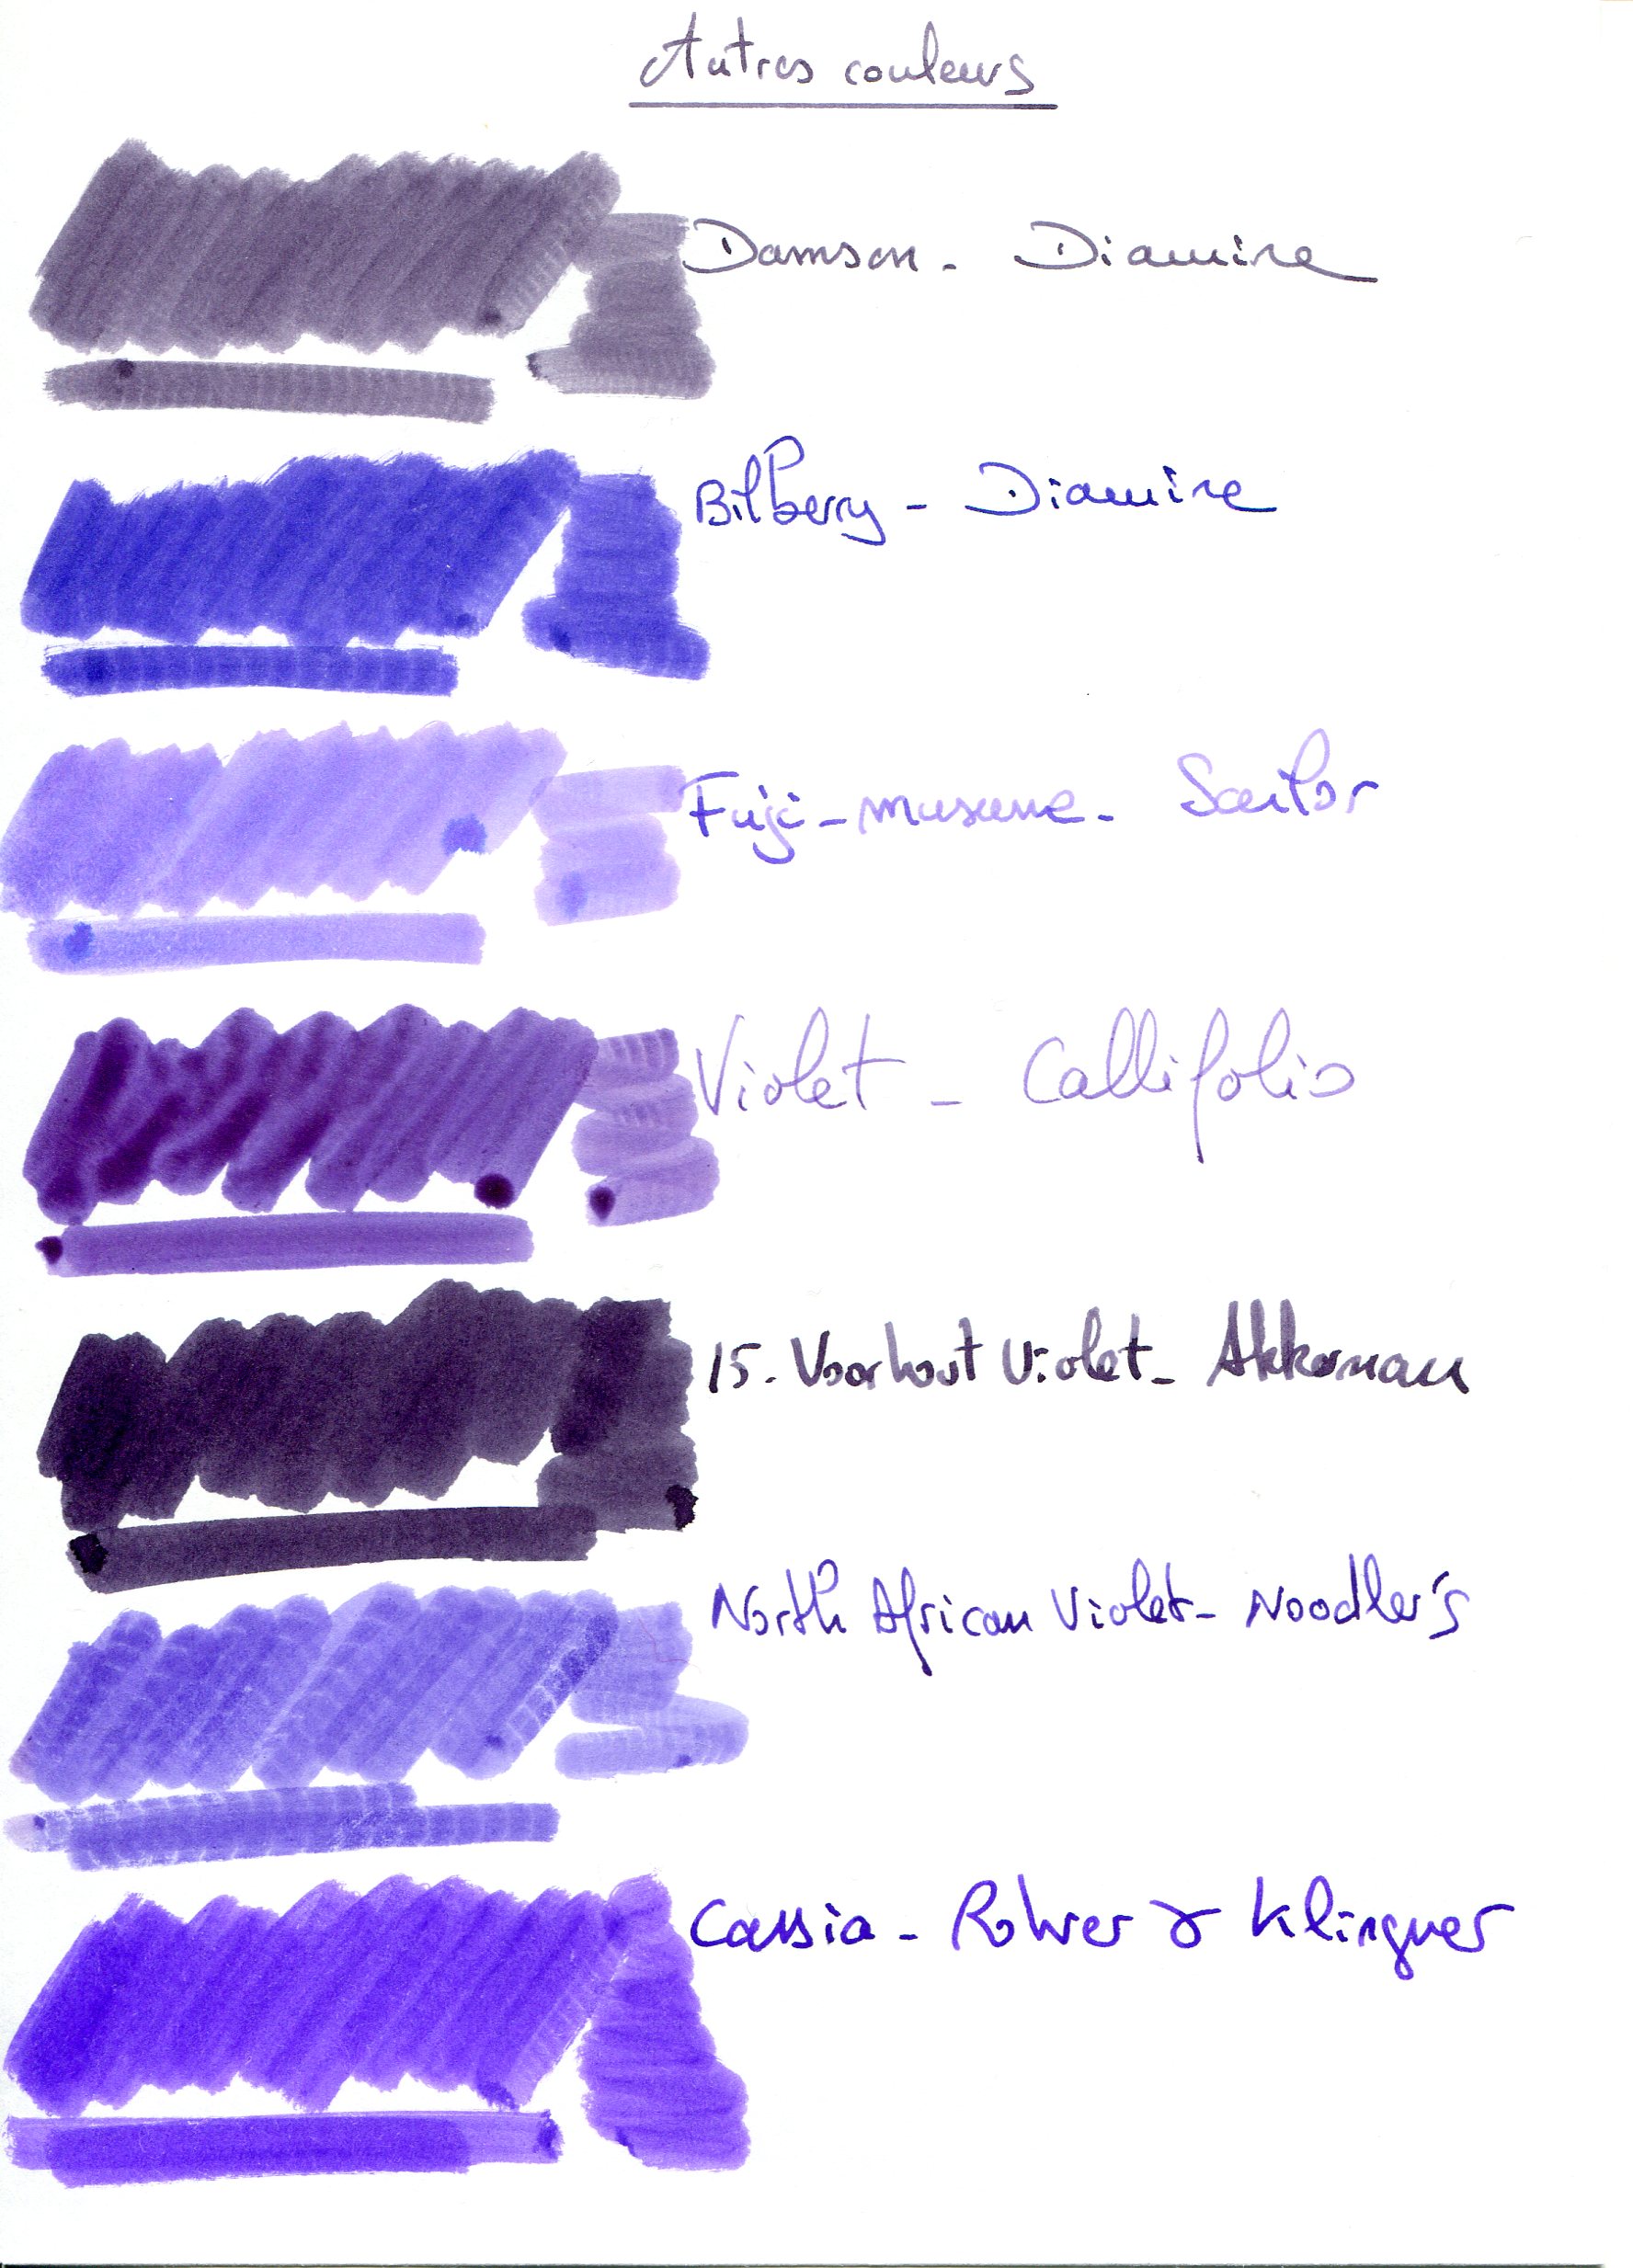 Autres couleurs
Damson - Diamine
Bilberry - Diamine
Fuji-musume - Sailor
Violet - Callifolio
15. Voorhout Violet - Akkerman
North African Violet - Noodler's
Cassia - Rohrer & Klinguer